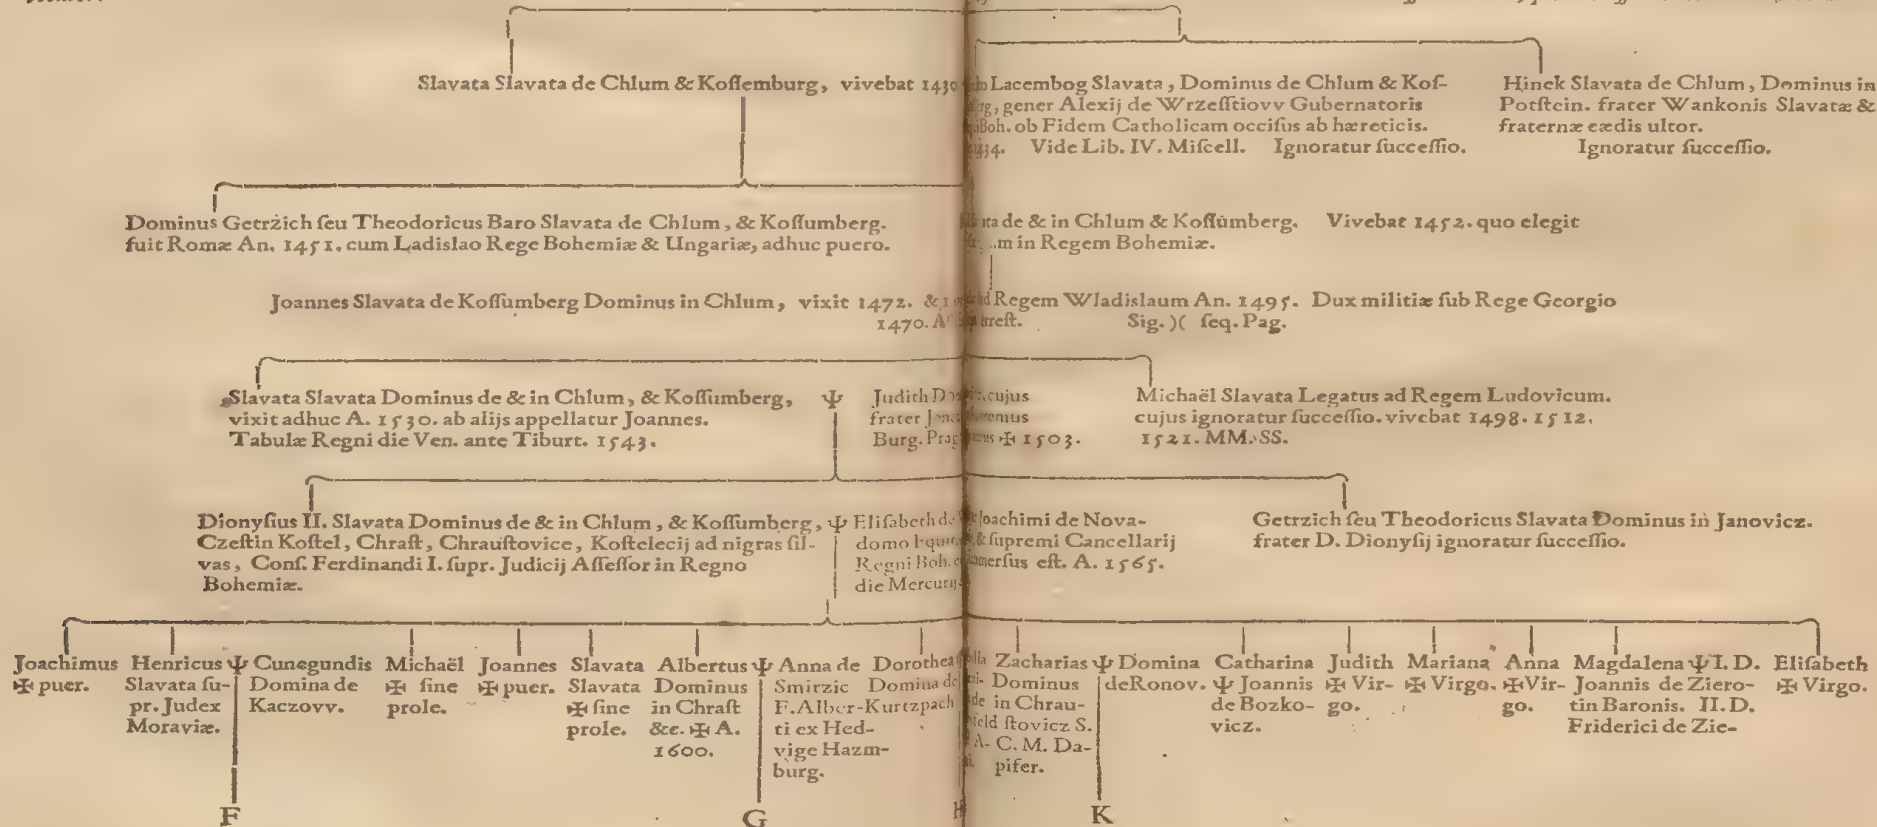 Slavata Slavata de Chlum & Koſſemburg, vivebat 1430
Lacembog Slavata, Dominus de Chlum & Koſ-
gener Alexij de Wrzeſſtiovv Gubernatoris
Boh. ob Fidem Catholicam occiſus ab hæreticis.
Vide Lib. IV. Miſcell. Ignoratur ſucceſſio.
Hinek Slavata de Chlum, Dominus in
Potſtein. frater Wankonis Slavatæ &
fraternæ cædis ultor.
Ignoratur ſucceſſio.
Dominus Getrzich ſeu Theodoricus Baro Slavata de Chlum, & Koſſumberg.
fuit Romæ An. 1451. cum Ladislao Rege Bohemiæ & Ungariæ, adhuc puero.
de & in Chlum & Koſſumberg. Vivebat 1452. quo elegit
in Regem Bohemiæ.
Joannes Slavata de Koſſumberg Dominus in Chlum, vixit 1472. &
Regem Wladislaum An. 1495. Dux militiæ ſub Rege Georgio
1470.
Sig. )( ſeq. Pag.
Slavata Slavata Dominus de & in Chlum, & Koſſumberg,
vixit adhuc A. 1530. ab alijs appellatur Joannes.
Tabulæ Regni die Ven. ante Tiburt. 1543.
Ψ Judith cujus
frater
Burg. ✠ 1503.
Michaël Slavata Legatus ad Regem Ludovicum.
cujus ignoratur ſucceſſio. vivebat 1498. 1512.
1521. MM. SS.
Dionyſius II. Slavata Dominus de & in Chlum, & Koſſumberg,
Czeſtin Koſtel, Chraſt, Chrauſtovice, Koſtelecij ad nigras ſil-
vas, Conſ. Ferdinandi I. ſupr. Judicij Aſſeſſor in Regno
Bohemiæ.
Ψ Eliſabeth de Joachimi de Nova-
domo & ſupremi Cancellarij
Regni Boh. eſt. A. 1565.
die Mercurij
Getrzich ſeu Theodoricus Slavata Dominus in Janovicz.
frater D. Dionyſij ignoratur ſucceſſio.
Joachimus
✠ puer.
Henricus Ψ
Slavata ſu-
pr. Judex
Moraviæ.
Cunegundis
Domina de
Kaczovv.
Michaël
✠ ſine
prole.
Joannes
✠ puer.
Slavata
Slavata
✠ ſine
prole.
Albertus Ψ
Dominus
in Chraſt
&c. ✠ A.
1600.
Anna de
Smirzic
F. Alber-
ti ex Hed-
vige Hazm-
burg.
Dorothea
Domina de
Kurtzpach
Zacharias Ψ
Dominus
in Chrau-
ſtovicz S.
C. M. Da-
pifer.
Domina
de Ronov.
Catharina
Ψ Joannis
de Bozko-
vicz.
Judith
✠ Vir-
go.
Mariana
✠ Virgo.
Anna
✠ Vir-
go.
Magdalena Ψ I. D.
Joannis de Ziero-
tin Baronis. II. D.
Friderici de Zie-
Eliſabeth
✠ Virgo.
F
G
H
K